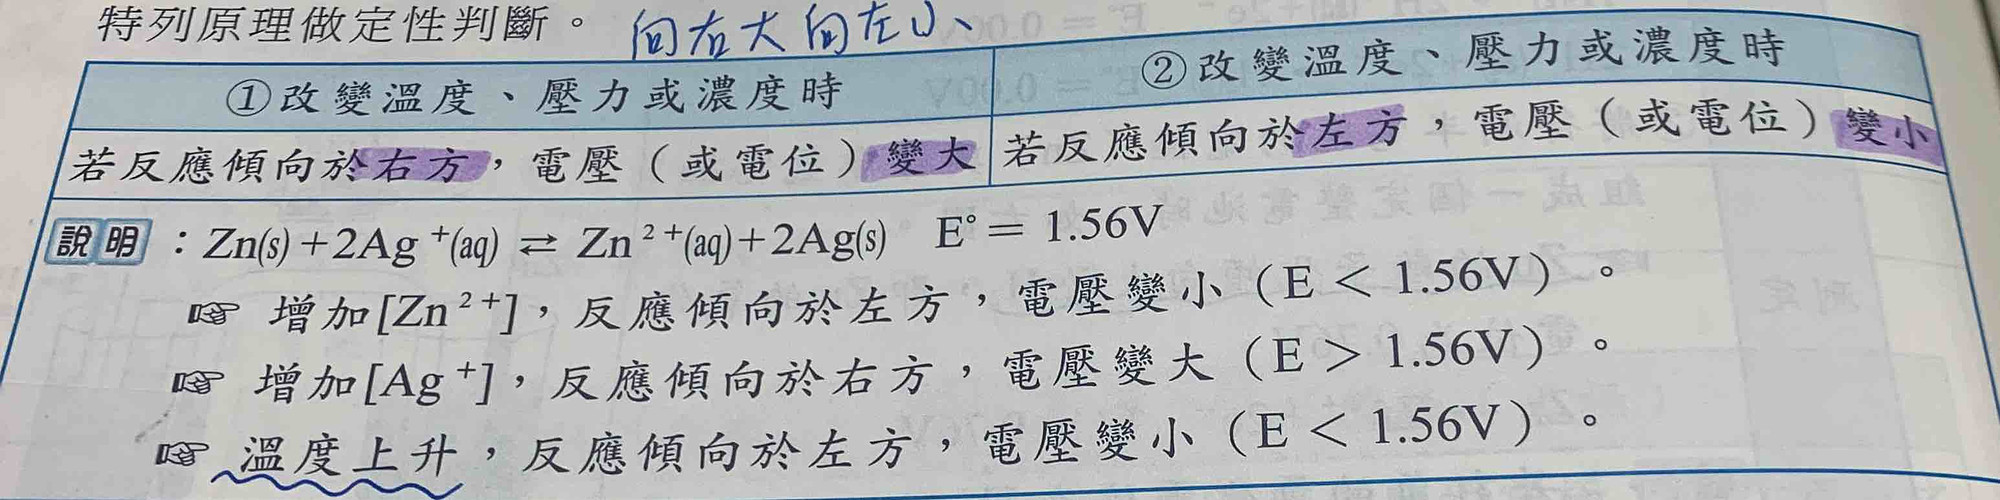 特列原理做定性判斷。 向右大向左小
①改變溫度、壓力或濃度時 ②改變溫度、壓力或濃度時
若反應傾向於右方，電壓（或電位）變大 若反應傾向於左方，電壓（或電位）變小
說明：Zn(s)+2Ag⁺(aq) ⇄ Zn²⁺(aq)+2Ag(s) E°=1.56V
☞ 增加[Zn²⁺]，反應傾向於左方，電壓變小（E < 1.56V）。
☞ 增加[Ag⁺]，反應傾向於右方，電壓變大（E > 1.56V）。
☞ 溫度上升，反應傾向於左方，電壓變小（E < 1.56V）。